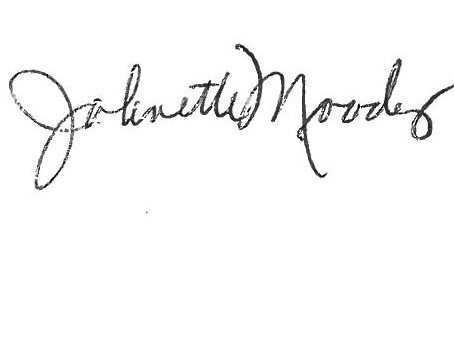 Johnette Moody